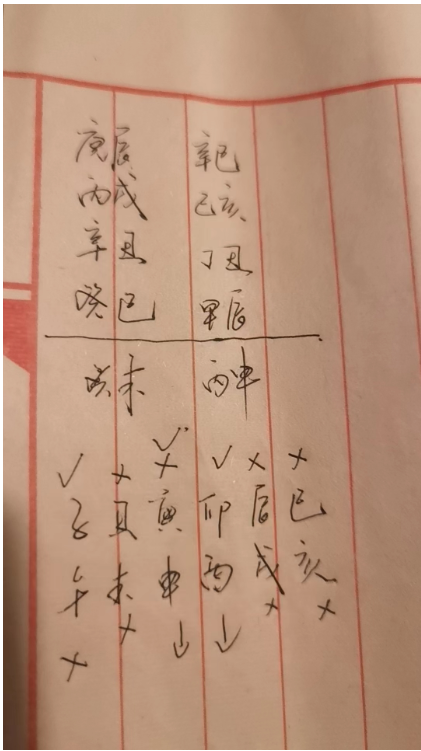 庚辰 辛巳
丙戌 己亥
辛丑 丁丑
癸巳 甲辰
癸未 丙申
✓
✓ × × ✓ × ×
子 丑 寅 卯 辰 巳
午 未 申 酉 戌 亥
× × ↓ ↓ × ×